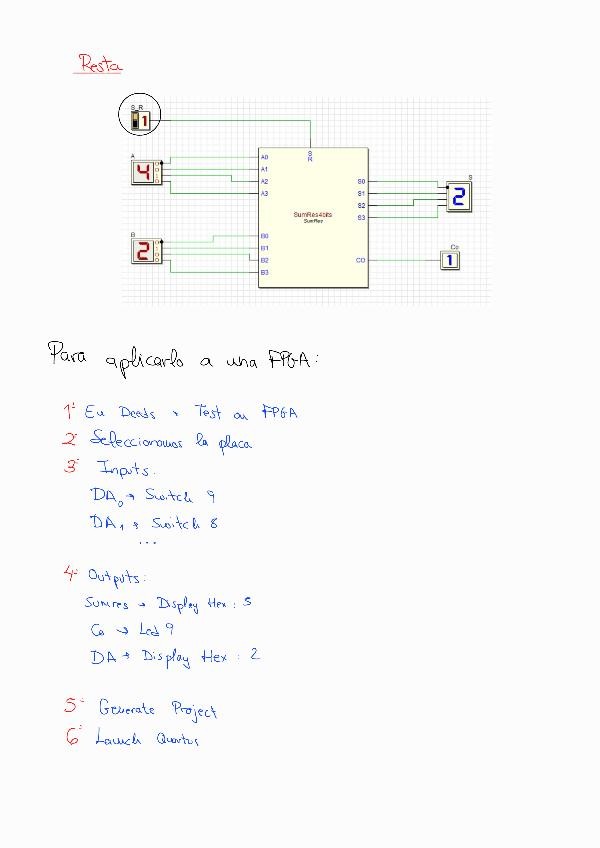 Resta
S_R
1
S
R
A
4
A0
A1
A2
A3
SumRes4bits
SumRes
S0
S1
S2
S3
S
2
B
2
B0
B1
B2
B3
CO
Co
1
Para aplicarlo a una FPGA:
1º En Deeds → Test on FPGA
2º Seleccionamos la placa
3º Inputs:
DA₀ → Switch 9
DA₁ → Switch 8
...
4º Outputs:
Sumres → Display Hex:
Co → Led 9
DA → Display Hex: 2
5º Generate Project
6º Launch Quartus